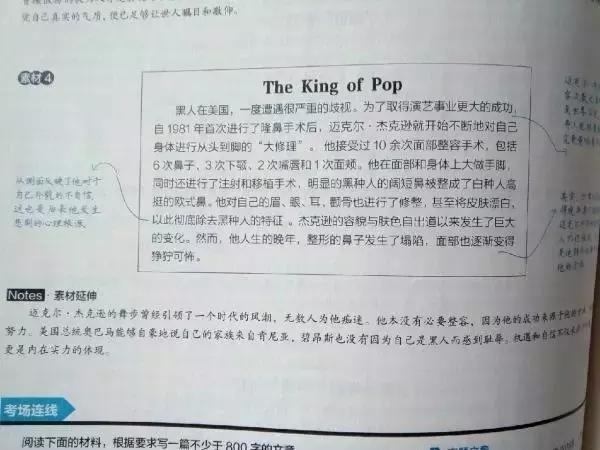 觉自己真实的气质,便已足够让世人瞩目和敬仰。
素材4
The King of Pop
黑人在美国,一度遭遇很严重的歧视。为了取得演艺事业更大的成功,
自 1981 年首次进行了隆鼻手术后,迈克尔·杰克逊就开始不断地对自己
身体进行从头到脚的“大修理”。他接受过 10 余次面部整容手术,包括
6 次鼻子、3 次下颚、2 次嘴唇和 1 次面颊。他在面部和身体上大做手脚,
同时还进行了注射和移植手术,明显的黑种人的阔短鼻被整成了白种人高
挺的欧式鼻。他对自己的眉、眼、耳、颧骨也进行了修整,甚至将皮肤漂白,
以此彻底除去黑种人的特征。杰克逊的容貌与肤色自出道以来发生了巨大
的变化。然而,他人生的晚年,整形的鼻子发生了塌陷,面部也逐渐变得
狰狞可怖。
从侧面反映了他对于
自己外貌的不自信,
这也是后来他发生
悲剧的心理根源。
Notes·素材延伸
迈克尔·杰克逊的舞步曾经引领了一个时代的风潮,无数人为他痴迷。他本没有必要整容,因为他的成功来源于他的
努力。美国总统奥巴马能够自豪地说自己的家族来自肯尼亚,碧昂斯也没有因为自己是黑人而感到耻辱。机遇和自信
更是内在实力的体现。
考场连线
阅读下面的材料,根据要求写一篇不少于 800 字的文章